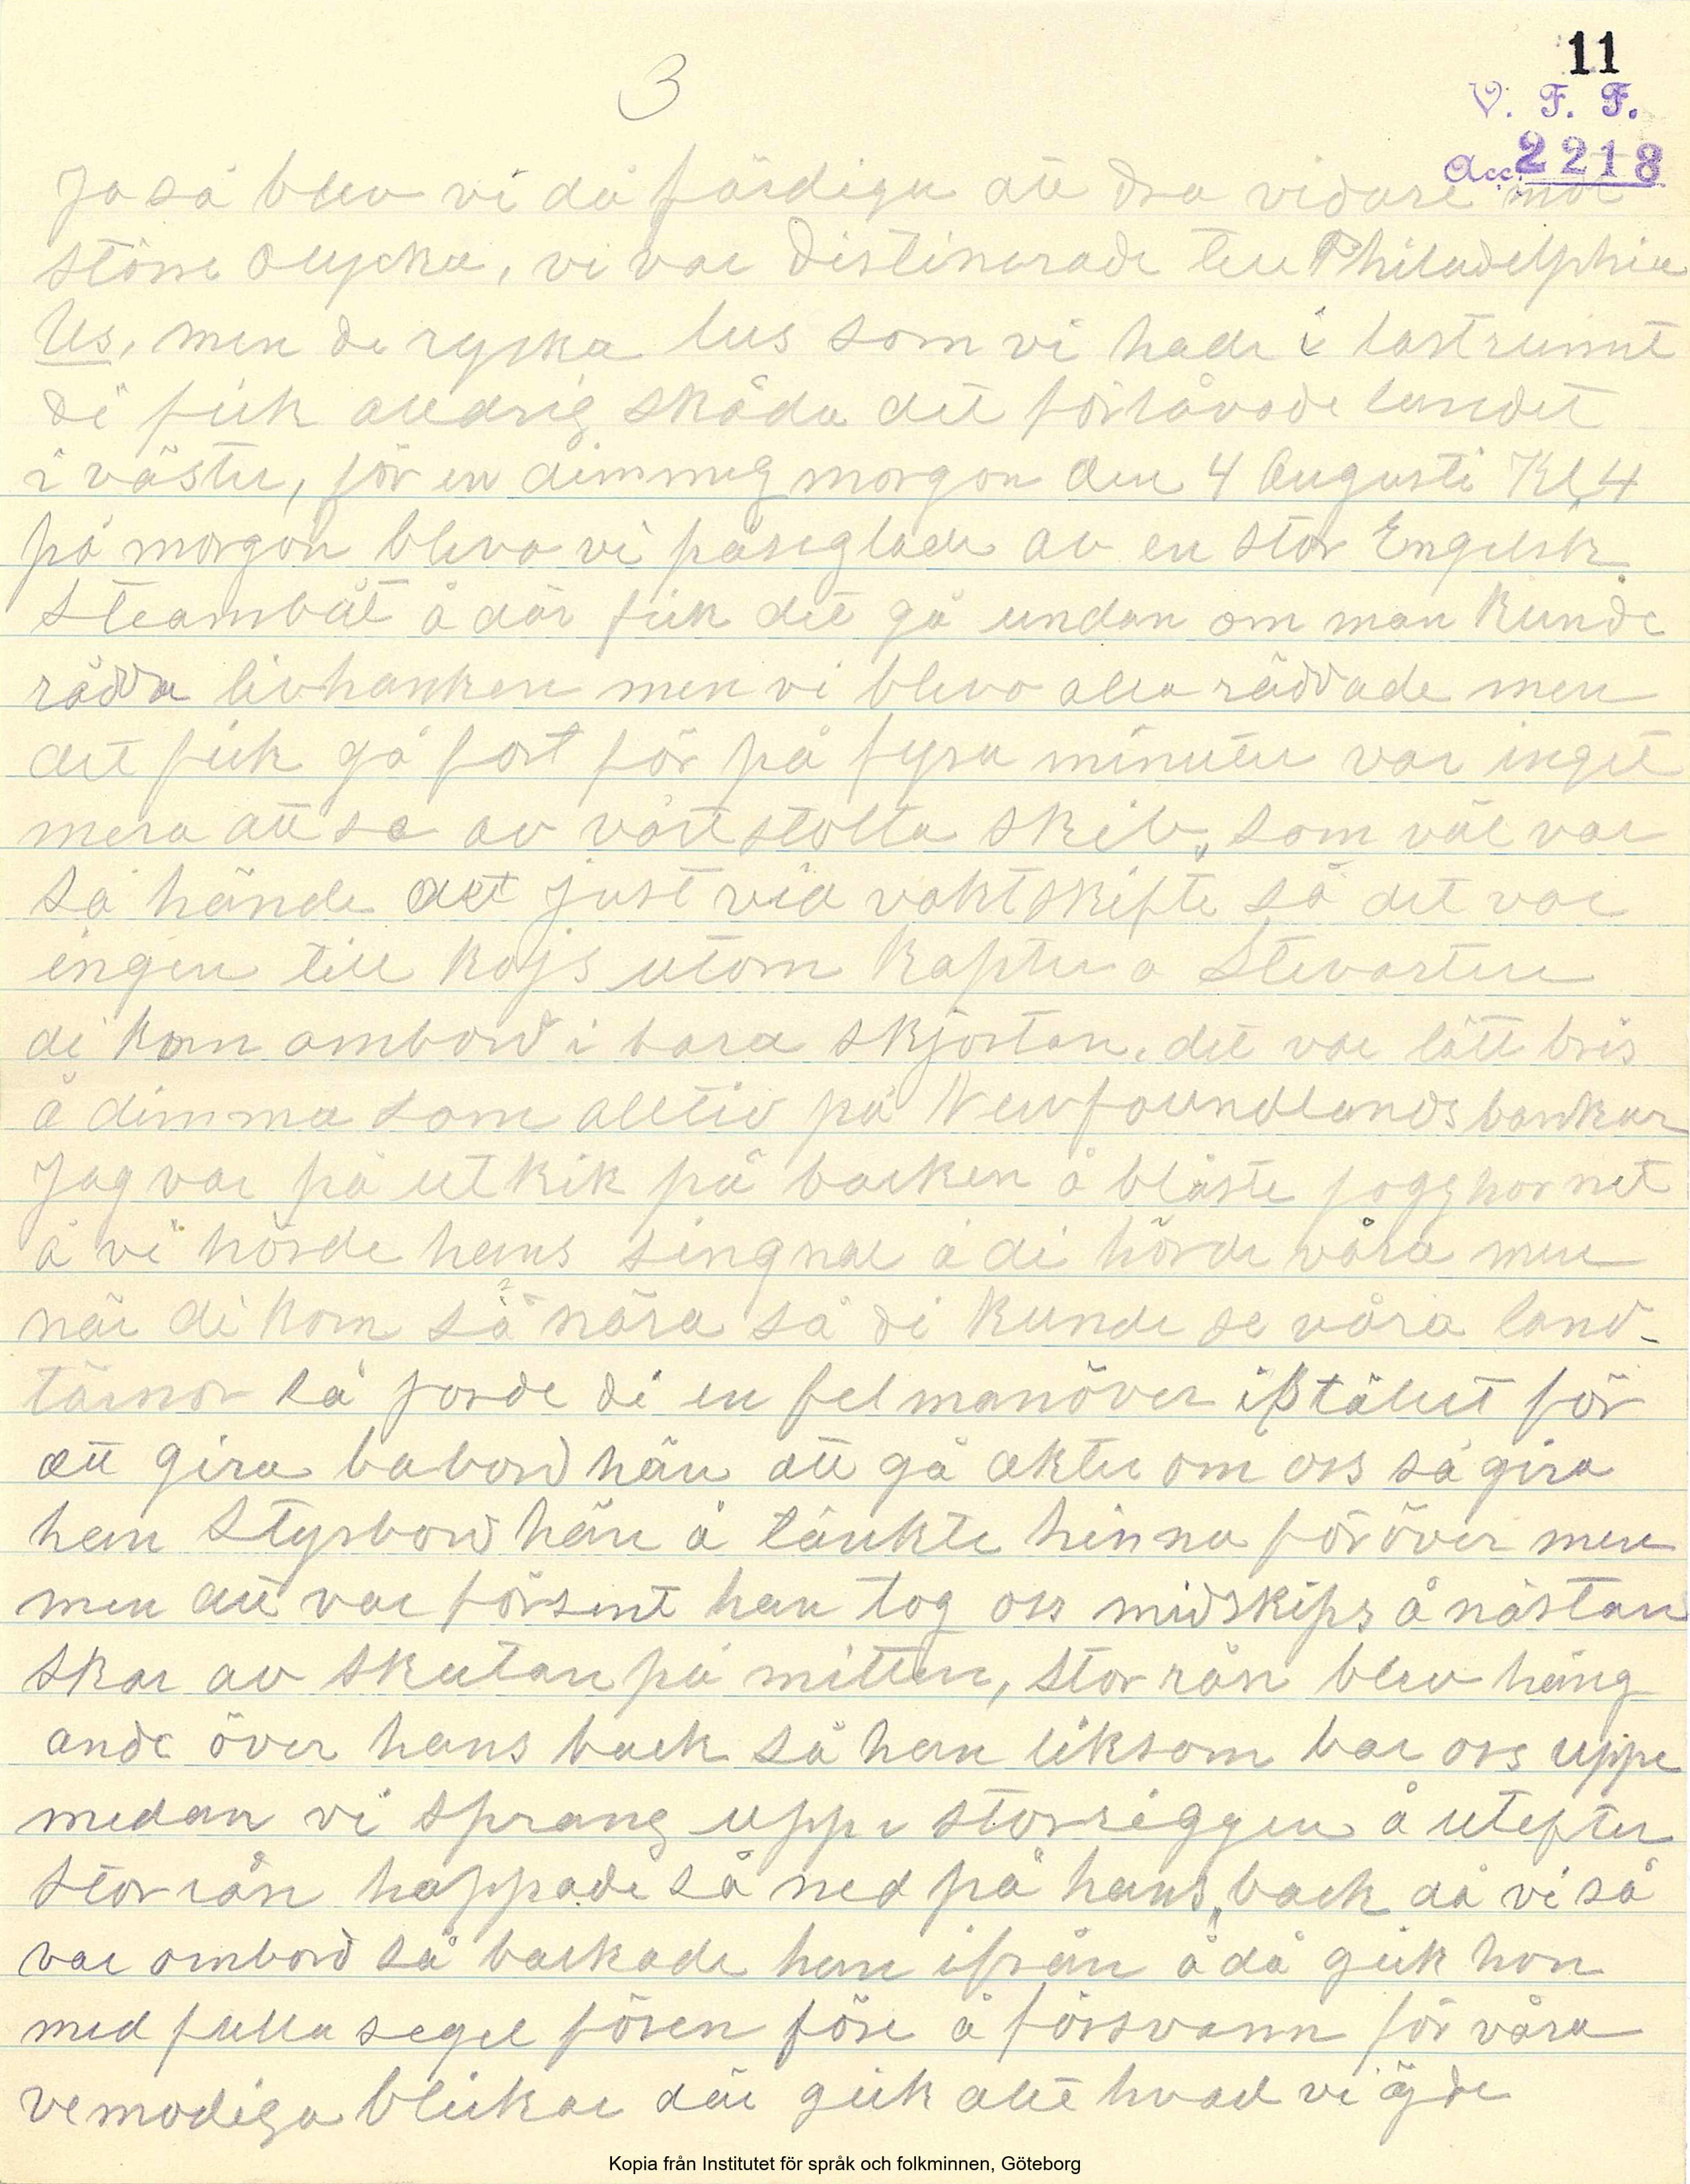 11
3
V. F. F.
Acc. 2218
Ja så blev vi då färdiga att dra vidare mot
större olycka, vi var distinerade till Philadelphia
Us, men de ryska lus som vi hade i lastrumt
di fick alldrig skåda det förlåvade landet
i väster, för en dimmig morgon den 4 Augusti Kl, 4
på morgon blevo vi påseglade av en stor Engelsk
Steambåt å där fick det gå undan om man kunde
rädda livhanken men vi blevo alla räddade men
det fick gå fort för på fyra minuter var inget
mera att se av vårt stolta skib, som väl var
så hände det just vid vaktskifte så det var
ingen till kojs utom kapten o Stevarten
di kom ombord i bara skjortan. det var lätt bris
å dimma som alltid på Newfoundlands bankar
Jag var på utkik på backen å blåste fogghornet
å vi hörde hans singnal å di hörde våra men
när di kom så nära så di kunde se våra land-
tärnor så jorde di en fel manöver istälet för
att gira babord hän att gå akter om oss så gira
han Styrbord hän å tänkte hinna föröver men
men det var försent han tog oss midskips å nästan
skar av skutan på mitten, stor rån blev häng
ande över hans back så han liksom bar oss uppe
medan vi sprang upp i storriggen å utefter
stor rån hoppade så ned på hans back då vi så
var ombord så backade han ifrån å då gick hon
med fulla segel fören före å försvann för våra
vemodiga blickar där gick allt hvad vi ägde
Kopia från Institutet för språk och folkminnen, Göteborg